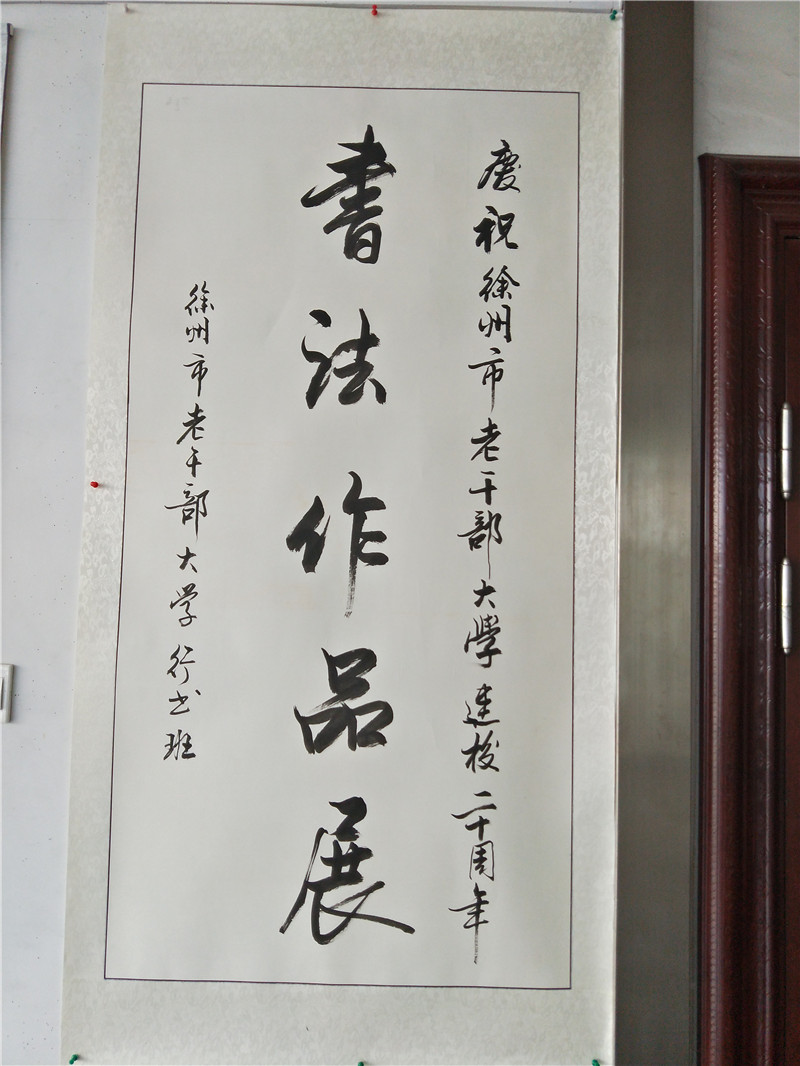 慶祝徐州市老干部大學建校二十周年
書法作品展
徐州市老干部大学行书班